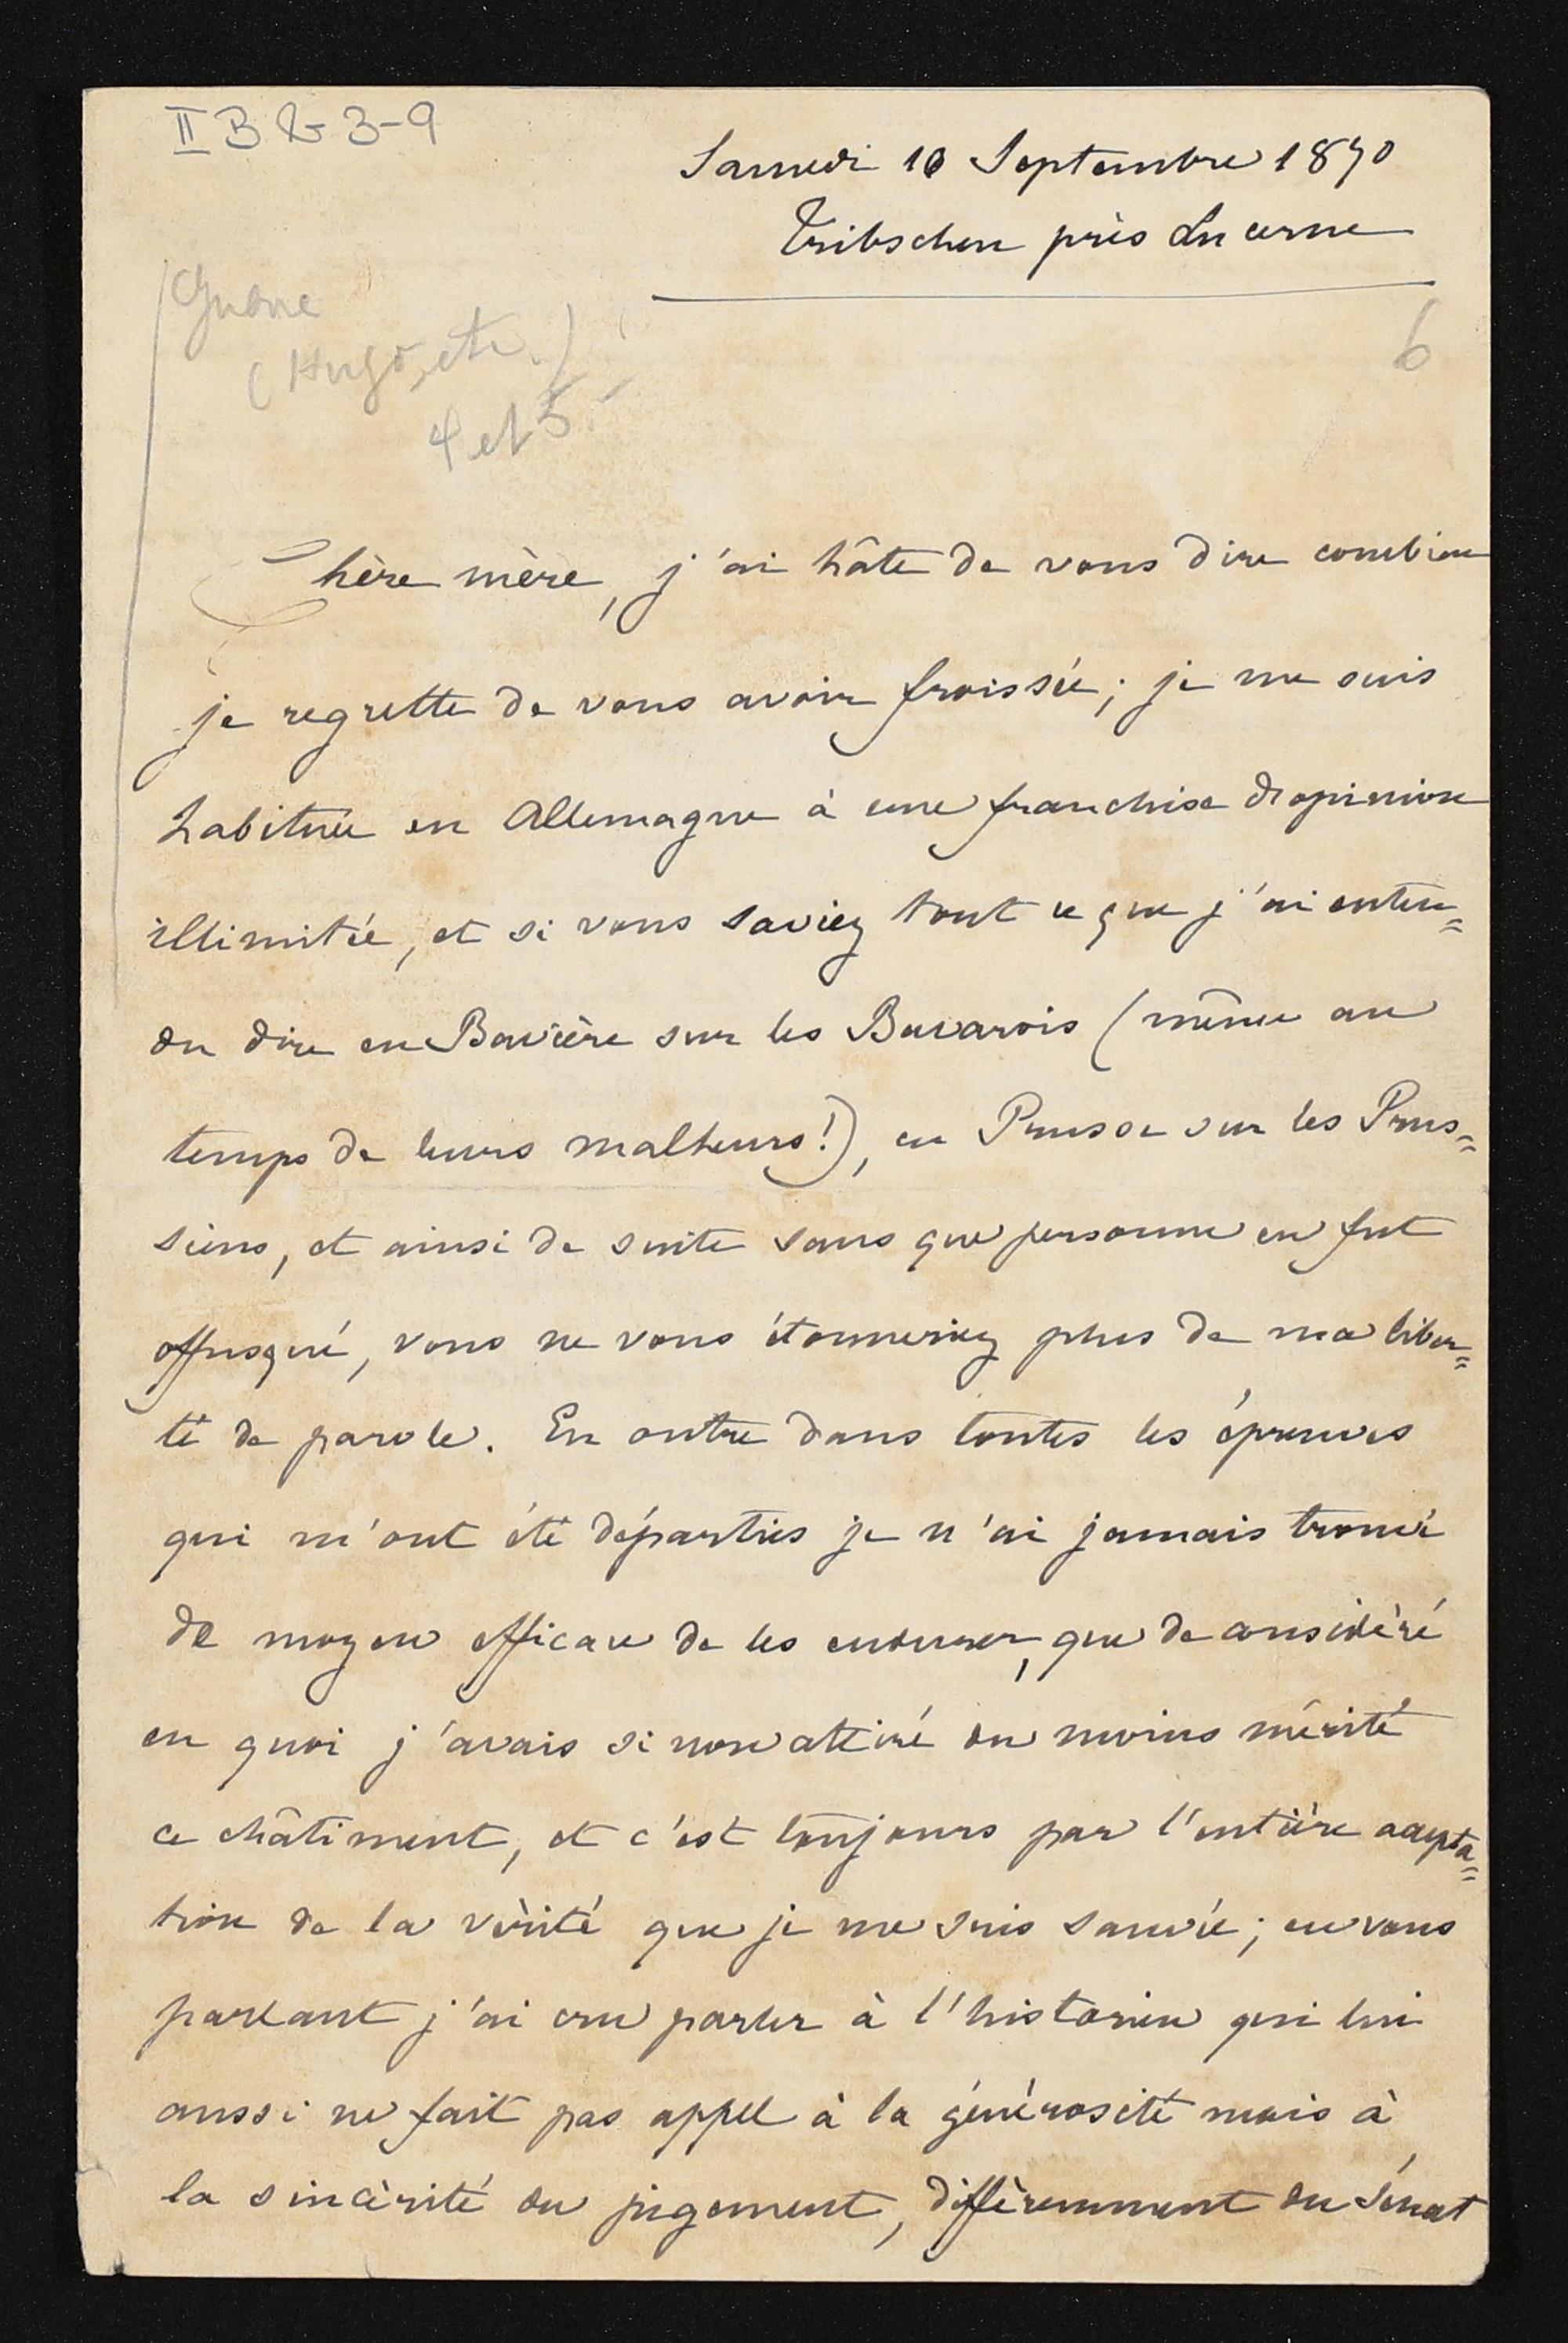 II B 2-3-9
Samedi 10 Septembre 1870
Tribschen près Lucerne
6
Guerre
(Hugo, etc.)
4 et 5
Chère mère, j'ai hâte de vous dire combien
je regrette de vous avoir froissée; je me suis
habituée en Allemagne à une franchise d'opinion
illimitée, et si vous saviez tout ce que j'ai enten=
du dire en Bavière sur les Bavarois (même au
temps de leurs malheurs!), en Prusse sur les Prus=
siens, et ainsi de suite sans que personne en fut
offusqué, vous ne vous étonneriez plus de ma liber=
té de parole. En outre dans toutes les épreuves
qui m'ont été départies je n'ai jamais trouvé
de moyen efficace de les endurer, que de considéré
en quoi j'avais si non attiré du moins mérité
ce châtiment, et c'est toujours par l'entière accepta=
tion de la vérité que je me suis sauvée; en vous
parlant j'ai cru parler à l'historien qui lui
aussi ne fait pas appel à la générosité mais à
la sincérité du jugement, différemment du Sénat